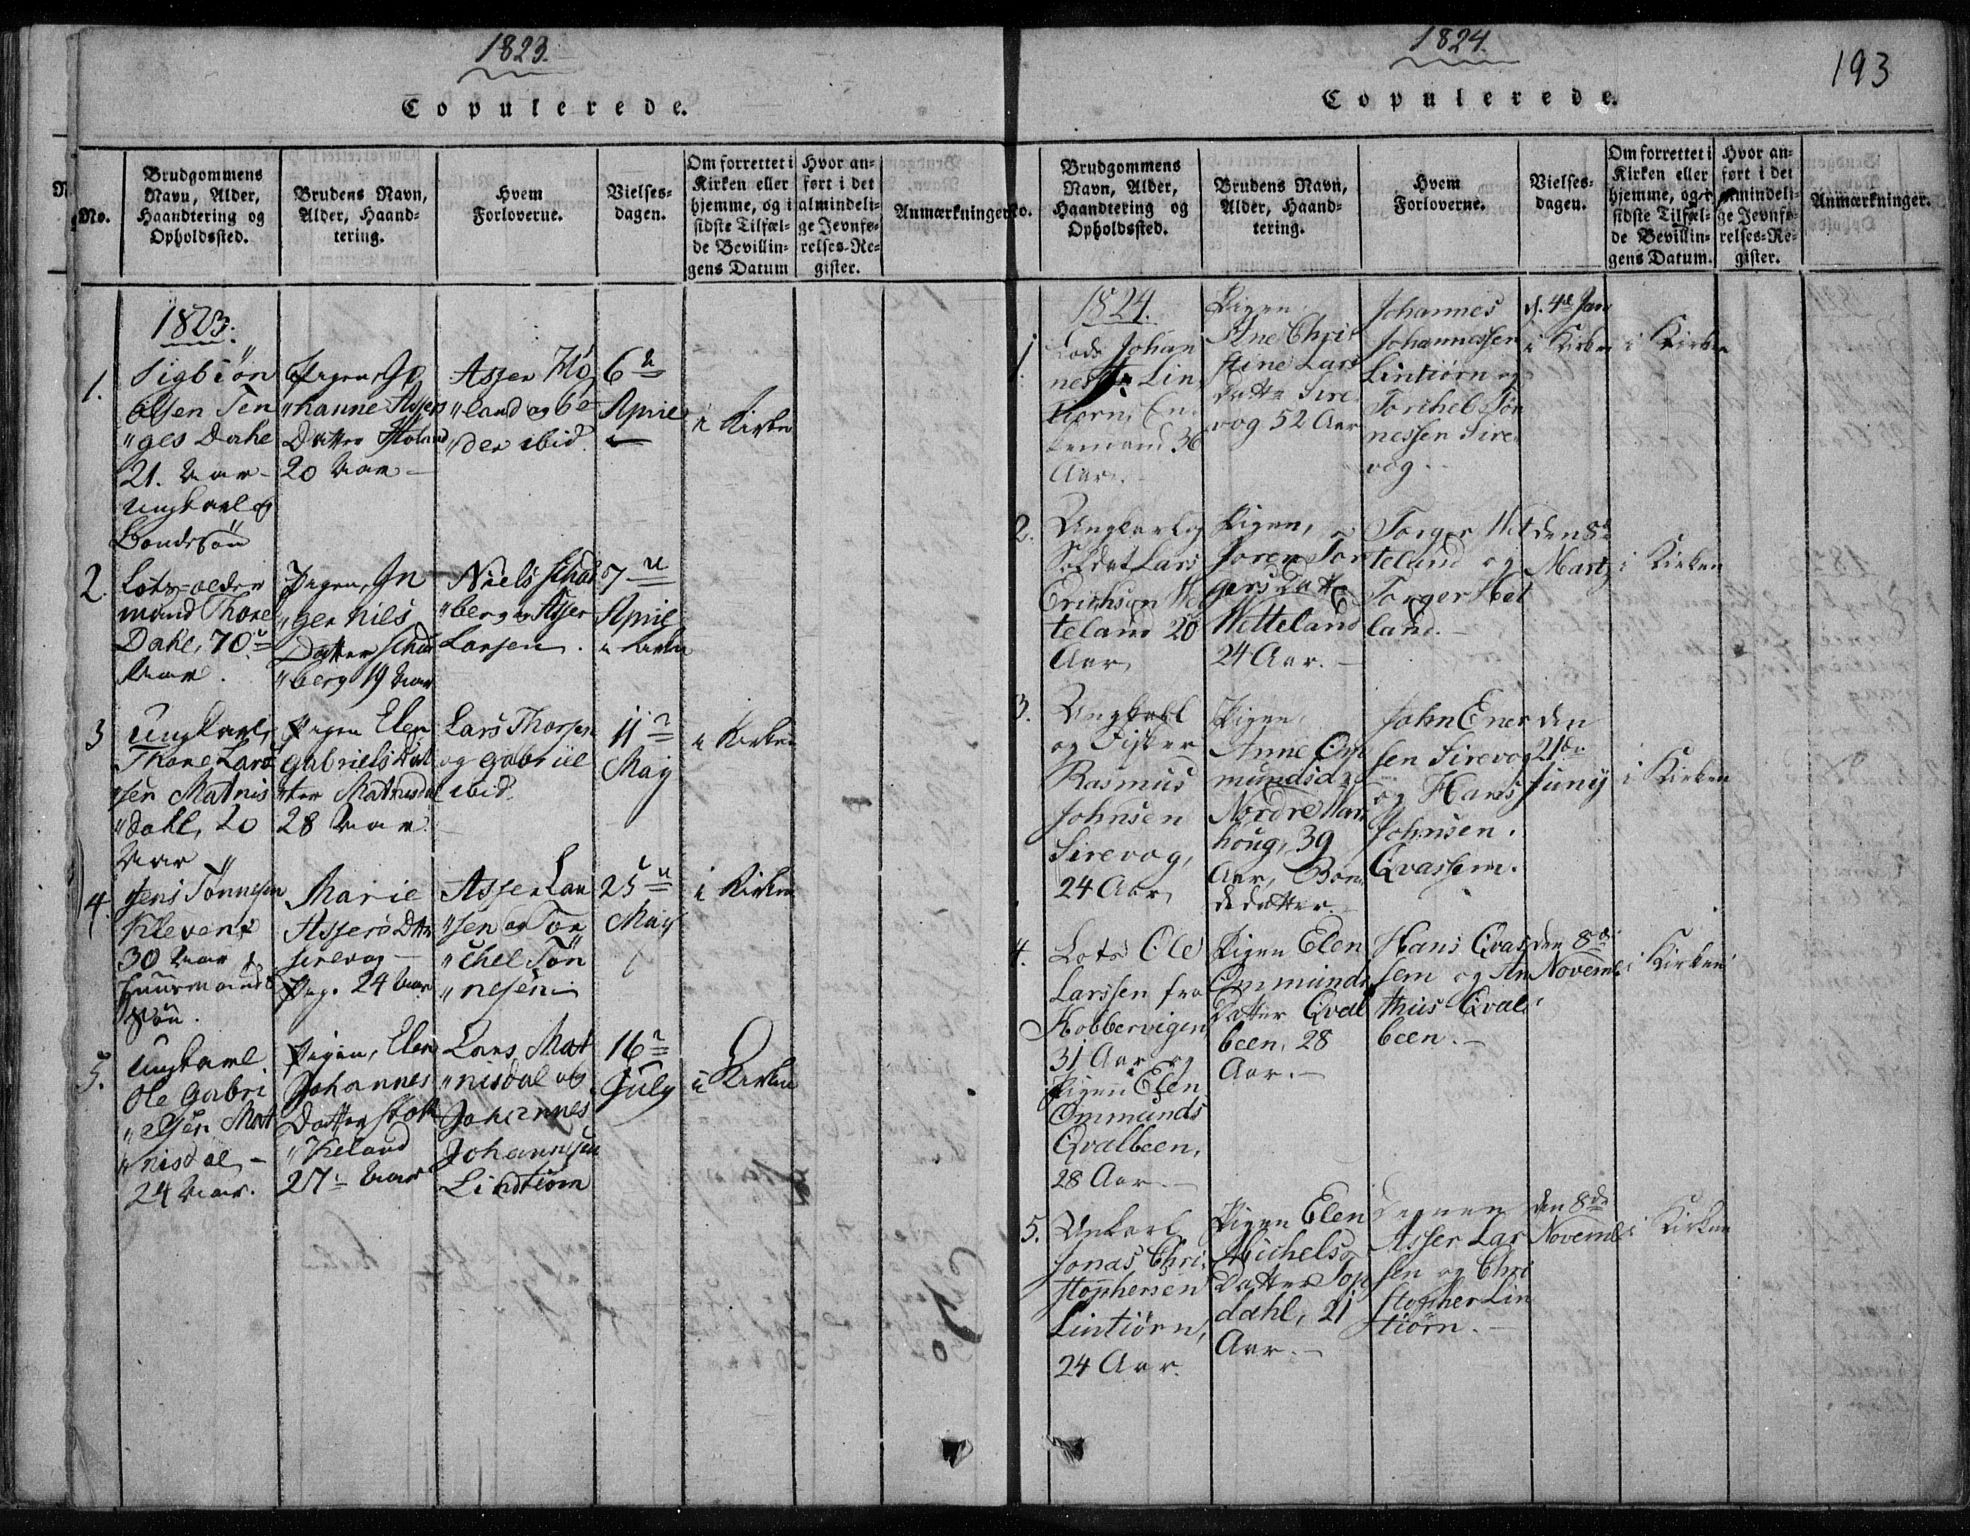 1823.
Copulerede.
No.
Brudgommens
Navn, Alder,
Haandtering og
Opholdssted.
Brudens Navn,
Alder, Haand-
tering.
Hvem
Forloverne.
Vielses-
dagen.
Om forrettet i
Kirken eller
hjemme, og i
sidste Tilfæl-
de Bevillin-
gens Datum
Hvor an-
ført i det
almindeli-
ge Jevnfø-
relses-Re-
gister.
Anmærkninger.
1823.
1.
Sigbiön
Olsen Ten
"ges Dahl
21. Aar
Ungkarl
Bondesön
Pigen Jo
"hanne Assers
Datter
20 Aar
Asser
"land og
"der ibid.
6te
April
i Kirken
2.
Lots-older
mand Thore
Dahl, 70
Aar.
Pigen In
"ger Niels
Datter
"berg 19 Aar
Niels
"berg Asser
Larsen.
7
April
i Kirken
3
Ungkarl,
Thore Lars
"sen Matnis
"dahl, 20
Aar
Pigen Elen
Gabriels Dat
"ter Mathisdal
28 Aar.
Lars Thorsen
og Gabriel
ibid.
11
May
i Kirken
4.
Jens Tönnesen
Klevene
30 Aar
Huusmands
Sön.
Marie
Assers Datter
Sirevog
Pige. 24 Aar
Asser Lar
"sen og Tor
"chel Tön
"nesen
25
May
i Kirken
5.
Ungkarl
Ole Gabri
"elsen Mat
"nisdal
24 Aar.
Pigen, Elen
Johannes
Datter Stok
"keland
27 Aar
Lars Mat
"nisdal og
Johannes
Johannesen
Lindtiörn
16
July
i Kirken
1824.
193
Copulerede.
No.
Brudgommens
Navn, Alder,
Haandtering og
Opholdssted.
Brudens Navn,
Alder, Haand-
tering.
Hvem
Forloverne.
Vielses-
dagen.
Om forrettet i
Kirken eller
hjemme, og i
sidste Tilfæl-
de Bevillin-
gens Datum.
Hvor an-
ført i det
almindeli-
ge Jevnfø-
relses-Re-
gister.
Anmærkninger.
1824.
1.
Lods Johan
nes Lin
tiörn, En
kemand 36
Aar.
Pigen
Ane Chri
stine Lars
Datter Sire
vog 52 Aar
Johannes
Johannessen
Lintiörn og
Torchel Tön
nessen Sire
vog.
d. 4de Jan
i Kirken i Kirken
2.
Ungkarl og
Soldat Lars
Erichsen Het
teland 20
Aar
Pigen,
Soren Tor
gers Datt
Hetteland
24 Aar.
Torger Het
teland og
Torger Het
land.
den 8de
Martz
i Kirken
3.
Ungkarl
og Fisker
Rasmus
Johnsen
Sirevog,
24 Aar
Pigen,
Anne Om
mundsd.
Nordre Var
houg, 39
Aar, Bon
dedatter.
John Ener
sen Sirevog
og Hans
Johnsen
Qvassem.
den
21de
Junij
i Kirken
4.
Lots Ole
Larssen fra
Kobbervigen
31 Aar og
Pigen Elen
Ommunds
Qvalbeen,
28 Aar.
Pigen Elen
Ommunds
Datter Qval
been, 28
Aar.
Hans Qvas
sem og An
thus Qval
been.
den 8de
Novembr
i Kirken
5.
Unkarl
Jonas Chri
stophersen
Lintiörn,
24 Aar.
Pigen Elen
Michels
Datter Top
dahl, 21
Aar.
Degnen
Asser Lar
sen og Chri
stopher Lin
tiörn.
den 8de
Novembr
i Kirken